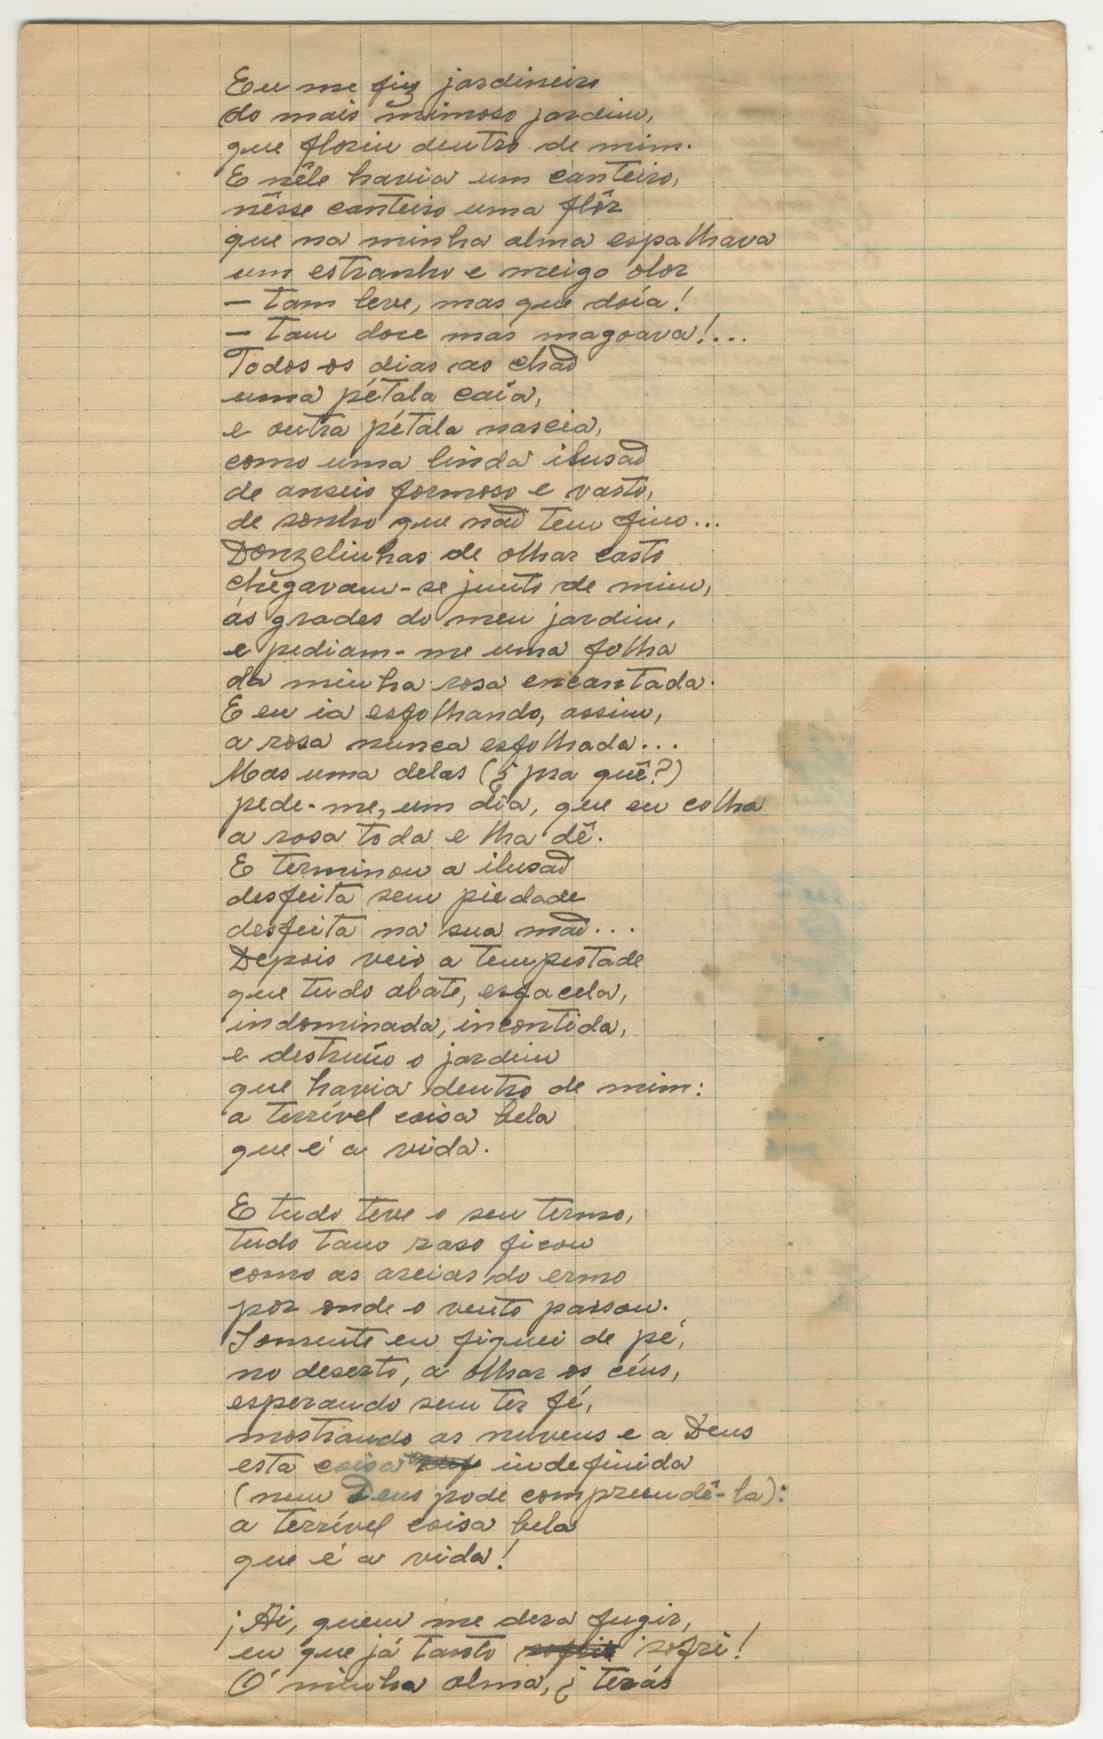 Eu me fiz jardineiro
do mais mimoso jardim,
que floriu dentro de mim.
E nêle havia um canteiro,
nêsse canteiro uma flôr
que na minha alma espalhava
um estranho e meigo olor
— tam leve, mas que doía!
— tam doce mas magoava!...
Todos os dias ao chão
uma pétala caía,
e outra pétala nascia,
como uma linda ilusão
de anseio formoso e vasto,
de sonho que não tem fim...
Donzelinhas de olhar casto
chegavam-se junto de mim,
ás grades do meu jardim,
e pediam-me uma folha
da minha rosa encantada.
E eu ia esfolhando, assim,
a rosa nunca esfolhada...
Mas uma delas (¿ pra quê?)
pede-me, um dia, que eu colha
a rosa toda e lha dê.
E terminou a ilusão
desfeita sem piedade
desfeita na sua mão...
Depois veio a tempestade
que tudo abate, esfacela,
indominada, incontida,
e destruío o jardim
que havia dentro de mim:
a terrível coisa bela
que é a vida.

E tudo teve o seu termo,
tudo tam raso ficou
como as areias do ermo
por onde o vento passou.
Somente eu fiquei de pé,
no deserto, a olhar os céus,
esperando sem ter fé,
mostrando as nuvens e a Deus
esta coisa indefinida
(nem Deus pode compreendê-la):
a terrível coisa bela
que é a vida!

¡Ai, quem me dera fugir,
eu que já tanto sofri!
Ó minha alma, ¿ terás